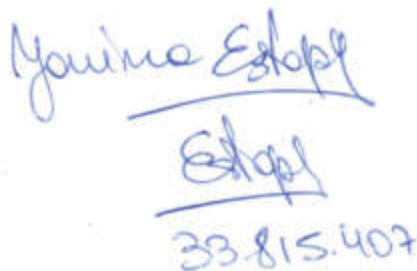 Yanina Estopy
Estopy
33.815.407